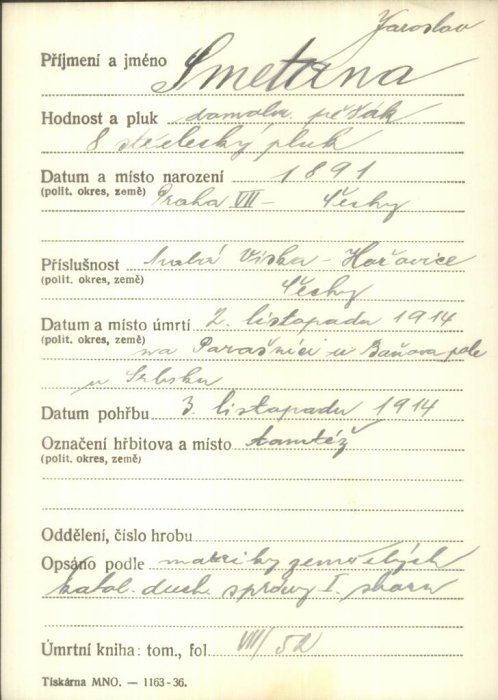 Jaroslav
Příjmení a jméno Smetana
Hodnost a pluk domobr. pěšák
8 střelecký pluk
Datum a místo narození 1891
(polit. okres, země) Praha VII – Čechy
Příslušnost Malá Víska – Hořovice
(polit. okres, země) Čechy
Datum a místo úmrtí 2. listopadu 1914
(polit. okres, země) na Parašnici u Baňova pole
v Srbsku
Datum pohřbu 3. listopadu 1914
Označení hřbitova a místo tamtéž
(polit. okres, země)
Oddělení, číslo hrobu
Opsáno podle matriky zemřelých
katol. duch. správy I. sboru
Úmrtní kniha: tom., fol. VIII/52
Tiskárna MNO. — 1163-36.